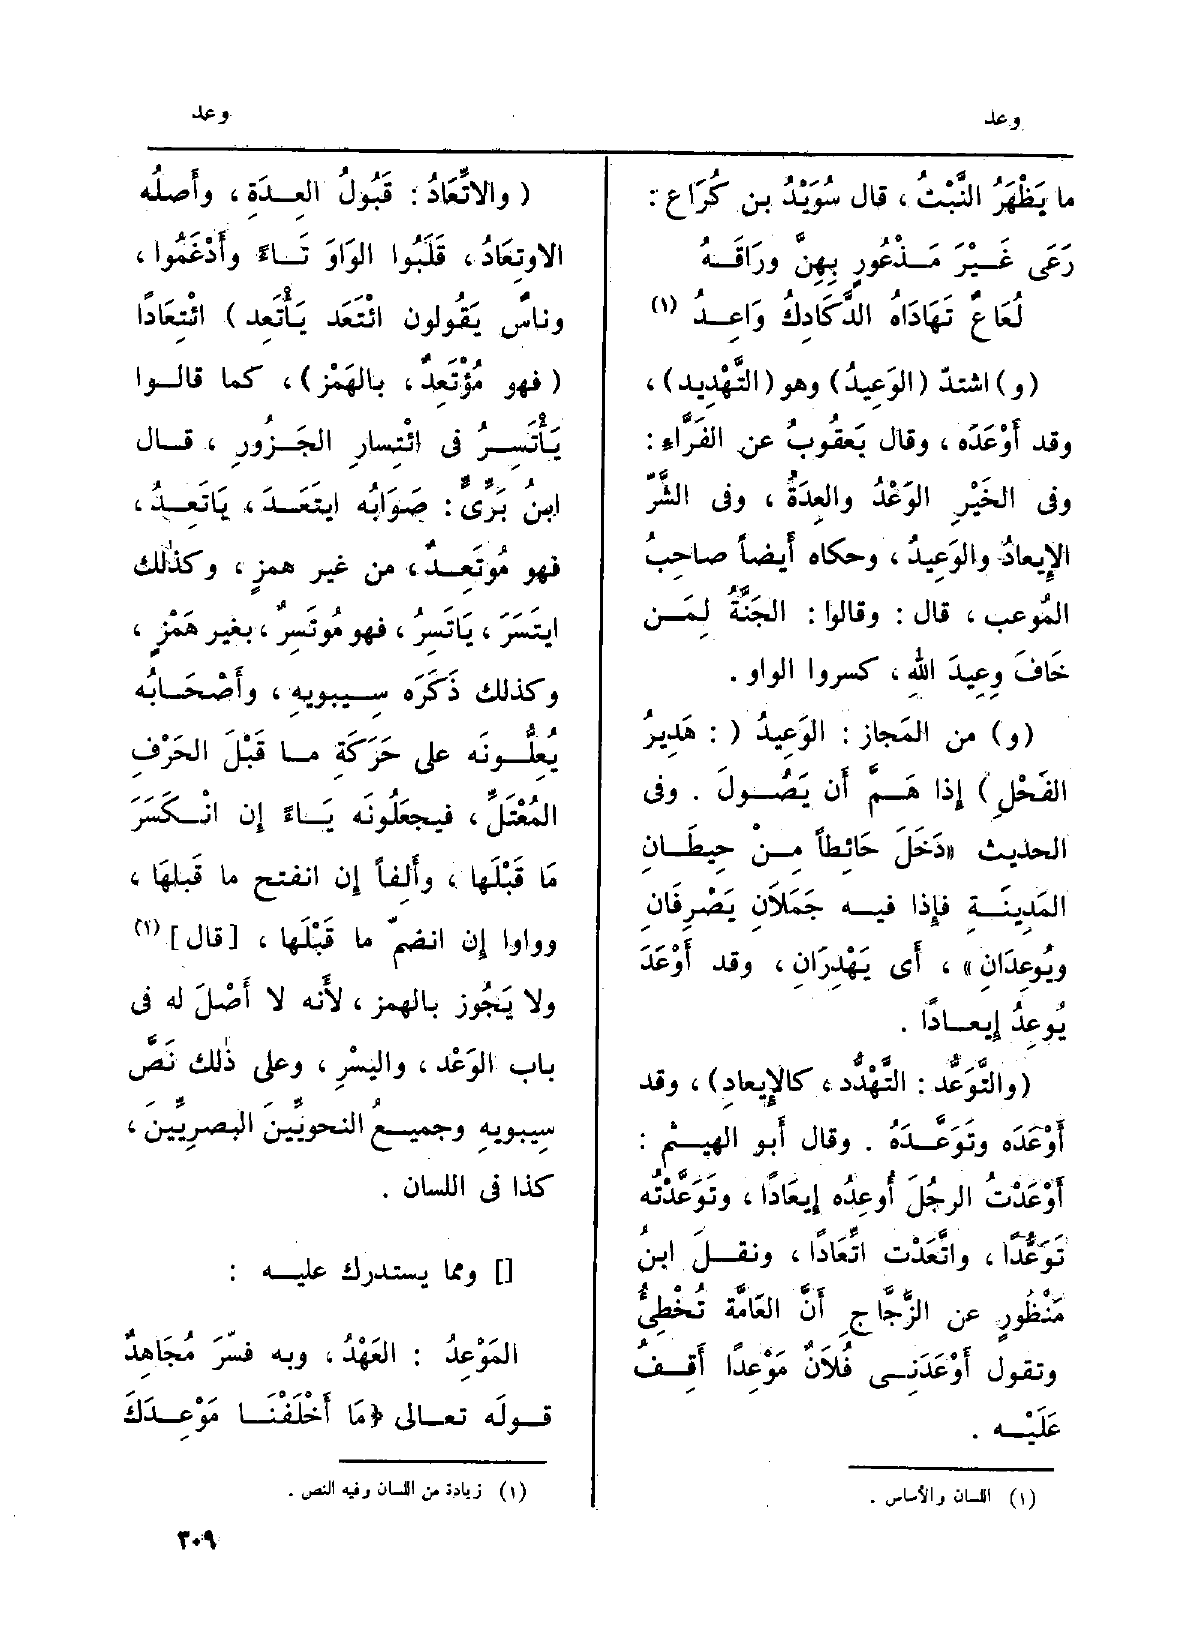 وعد
وعد
ما يَظْهَرُ النَّبْتُ ، قال سُوَيْدُ بن كُرَاع :
رَعَى غَيْرَ مَذْعُورٍ بِهِنَّ ورَاقَهُ
لُعَاعٌ تَهَادَاهُ الدَّكَادِكُ وَاعِدُ (١)
(و) اشتدّ (الوَعِيدُ) وهو (التَّهْدِيد) ،
وقد أَوْعَدَه ، وقال يَعقوبُ عن الفَرَّاءِ :
وفى الخَيْرِ الوَعْدُ والعِدَةُ ، وفى الشَّرِّ
الإِيعادُ والوَعِيدُ ، وحكاه أَيضاً صاحبُ
المُوعب ، قال : وقالوا : الجَنَّةُ لِمَن
خَافَ وِعِيدَ اللهِ ، كسروا الواو .
(و) من المَجاز : الوَعِيدُ ( : هَدِيرُ
الفَحْلِ) إِذا هَمَّ أَن يَصُولَ . وفى
الحديث «دَخَلَ حَائطاً مِنْ حِيطَانِ
المَدِينَةِ فإِذا فيه جَمَلاَنِ يَصْرِفَانِ
ويُوعِدَانِ» ، أَى يَهْدِرَانِ ، وقد أَوْعَدَ
يُوعِدُ إِيعادًا .
(والتَّوَعُّد : التَّهَدُّد ، كالإِيعادِ) ، وقد
أَوْعَدَه وتَوَعَّدَهُ . وقال أَبو الهيثم :
أَوْعَدْتُ الرجُلَ أُوعِدُه إِيعَادًا ، وتَوَعَّدْتُه
تَوَعُّدًا ، واتَّعَدْت اتِّعَادًا ، ونقل ابنُ
مَنْظُورٍ عن الزَّجَّاجِ أَنَّ العَامَّة تُخْطِئُ
وتقول أَوْعَدَنِى فُلاَنٌ مَوْعِدًا أَقِفُ
عَلَيْه .
(١) اللسان والأساس .
( والاتِّعَادُ : قَبُولُ العِدَةِ ، وأَصلُه
الاوتِعَادُ ، قَلَبُوا الوَاوَ تَاءً وأَدْغَمُوا ،
وناسٌ يَقُولون ائْتَعَد يَأْتَعِد ) ائْتِعَادًا
( فهو مُؤْتَعِدٌ ، بالهَمْز) ، كما قالوا
يَأْتَسِرُ فى ائْتِسارِ الجَزُورِ ، قال
ابنُ بَرِّىٍّ : صَوَابُه ايتَعَدَ ، ياتَعِدُ ،
فهو مُوتَعِدٌ ، من غير همزٍ ، وكذٰلك
ايتَسَرَ ، يَاتَسِرُ ، فهو مُوتَسِرٌ ، بغير هَمْزٍ ،
وكذلك ذَكَرَه سِيبويهِ ، وأَصْحَابُه
يُعِلُّونَه على حَرَكَةِ ما قَبْلَ الحَرْفِ
المُعْتَلِّ ، فيجعَلُونَه يَاءً إِن انْكَسَرَ
مَا قَبْلَها ، وأَلفاً إِن انفتح ما قَبلها ،
وواوا إِن انضمّ ما قَبْلَها ، [قال] (١)
ولا يَجُوز بالهمز ، لأَنه لا أَصْلَ له فى
باب الوَعْد ، واليسْرِ ، وعلى ذٰلك نَصَّ
سِيبويهِ وجميعُ النحويِّينَ البصريِّينَ ،
كذا فى اللسان .
[] ومما يستدرك عليه :
المَوْعِدُ : العَهْدُ ، وبه فسّرَ مُجَاهِدٌ
قوله تعالى ﴿مَا أَخْلَفْنَا مَوْعِدَكَ
(١) زيادة من اللسان وفيه النص .
٣٠٩